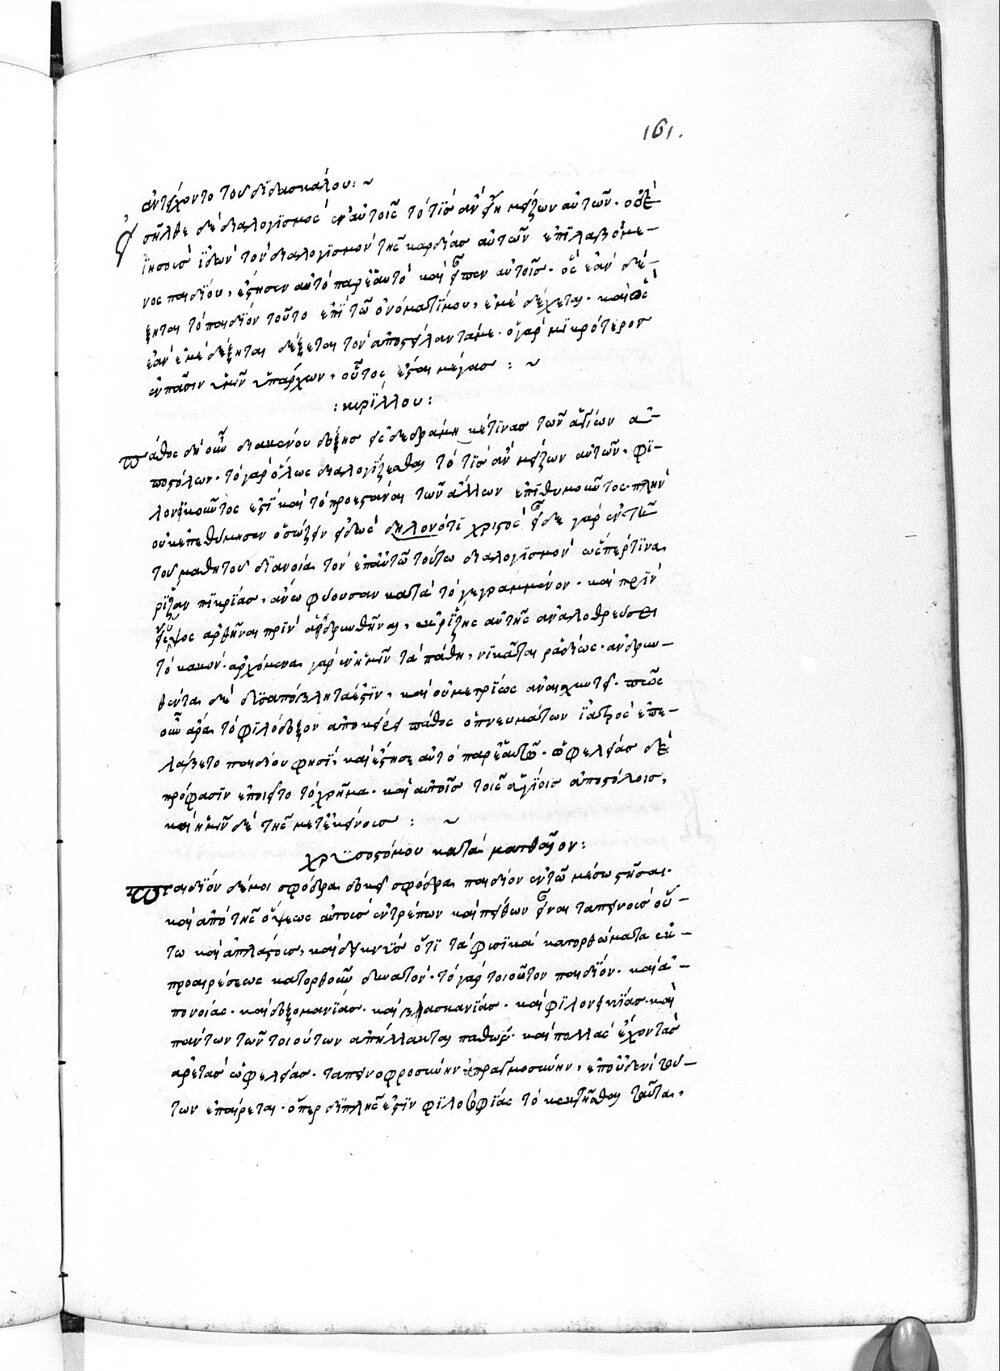 161.
ἀντείχοντο τοῦ διδασκάλου: ~
εἰσῆλθε δὲ διαλογϊσμὸς ἐν αὐτοῖς τὸ τίς ἂν εἴη μείζων αὐτῶν. ὁ δὲ
ἰησοῦς ἰδὼν τὸν διαλογϊσμὸν τῆς καρδίας αὐτῶν ἐπϊλαβόμε-
νος παιδίου, ἔστησεν αὐτὸ παρ' ἑαυτῶ καὶ εἶπεν αὐτοῖς. ὃς ἐὰν δέ-
ξηται τὸ παιδίον τοῦτο ἐπὶ τῶ ὀνόματί μου, ἐμὲ δέχεται. καὶ ὃς
ἐὰν ἐμὲ δέξηται δέχεται τὸν ἀποστείλαντά με. ὁ γὰρ μϊκρότερος
ἐν πᾶσιν ὑμῖν ὑπάρχων, οὗτος ἔσται μέγας : ~
: κυρίλλου :
πάθος δὴ οὖν διακένου δόξης εἰσδεδράμηκέ τινας τῶν ἁγίων ἀ-
ποστόλων. τὸ γὰρ ὅλως διαλογίζεσθαι τὸ τίς ἂν μείζων αὐτῶν, φϊ-
λονεικοῦντος ἐστὶ καὶ τὸ προεστάναι τῶν ἄλλων ἐπϊθυμοῦντος. πλὴν
οὐκ ἐπεθύμησεν ὁ σώζειν εἰδὼς δηλονότϊ χριστός εἶδε γὰρ ἐν τῆ
τοῦ μαθητοῦ διανοία τὸν ἐπ' αὐτῶ τούτω διαλογϊσμὸν ὥσπερ τινα
ρίζαν πϊκρίας, ἄνω φύουσαν κατὰ τὸ γεγραμμένον. καὶ πρὶν
εἰς ὕψος ἀρθῆναι πρὶν ἁδρυνθῆναι, ἐκ ρίζης αὐτῆς ἀναλοθρεύσει
τὸ κακόν. ἀρχόμενα γὰρ ἐν ἡμῖν τὰ πάθη, νικᾶται ῥαδίως. ἁδρυν-
θέντα δὲ δυσαπόβλητά ἐστϊν, καὶ οὐ μετρίως ἀναισχυντεῖ. πῶς
οὖν ἄρα τὸ φϊλόδοξον ἀποκείρει πάθος ὁ πνευμάτων ἰατρὸς ἐπε-
λάβετο παιδίου φησὶ, καὶ ἔστησεν αὐτὸ παρ' ἑαυτῶ. ὠφελείας δὲ
πρόφασιν ἐποιεῖτο τὸ χρῆμα. καὶ αὐτοῖς τοῖς ἁγίοις ἀποστόλοις,
καὶ ἡμῖν δὲ τοῖς μετ' ἐκείνοις : ~
χρυσοστόμου κατὰ ματθαῖον :
παιδίον δέ μοι σφόδρα δοκεῖ σφόδρα παιδίον ἐν τῶ μέσω στῆσαι.
καὶ ἀπὸ τῆς ὄψεως αὐτοὺς ἐντρέπων καὶ πείθων εἶναι ταπεινοὺς οὕ-
τω καὶ ἀπλάστους, καὶ δεικνὺς ὅτϊ τὰ φυσϊκὰ κατορθώματα ἐκ
προαιρέσεως κατορθοῦν δυνατόν. τὸ γὰρ τοιοῦτον παιδίον. καὶ ἀ-
πονοίας. καὶ δοξομανίας. καὶ βασκανίας. καὶ φϊλονεικίας. καὶ
πάντων τῶν τοιούτων ἀπήλλακται παθῶν. καὶ πολλὰς ἔχοντας
ἀρετὰς ἀφελείας. ταπεινοφροσύνην ἀπραγμοσύνην, ἐπ' οὐδενὶ τού-
των ἐπαίρεται. ὅπερ διπλῆς ἐστὶν φϊλοσοφίας τὸ κεκτῆσθαι ταῦτα,